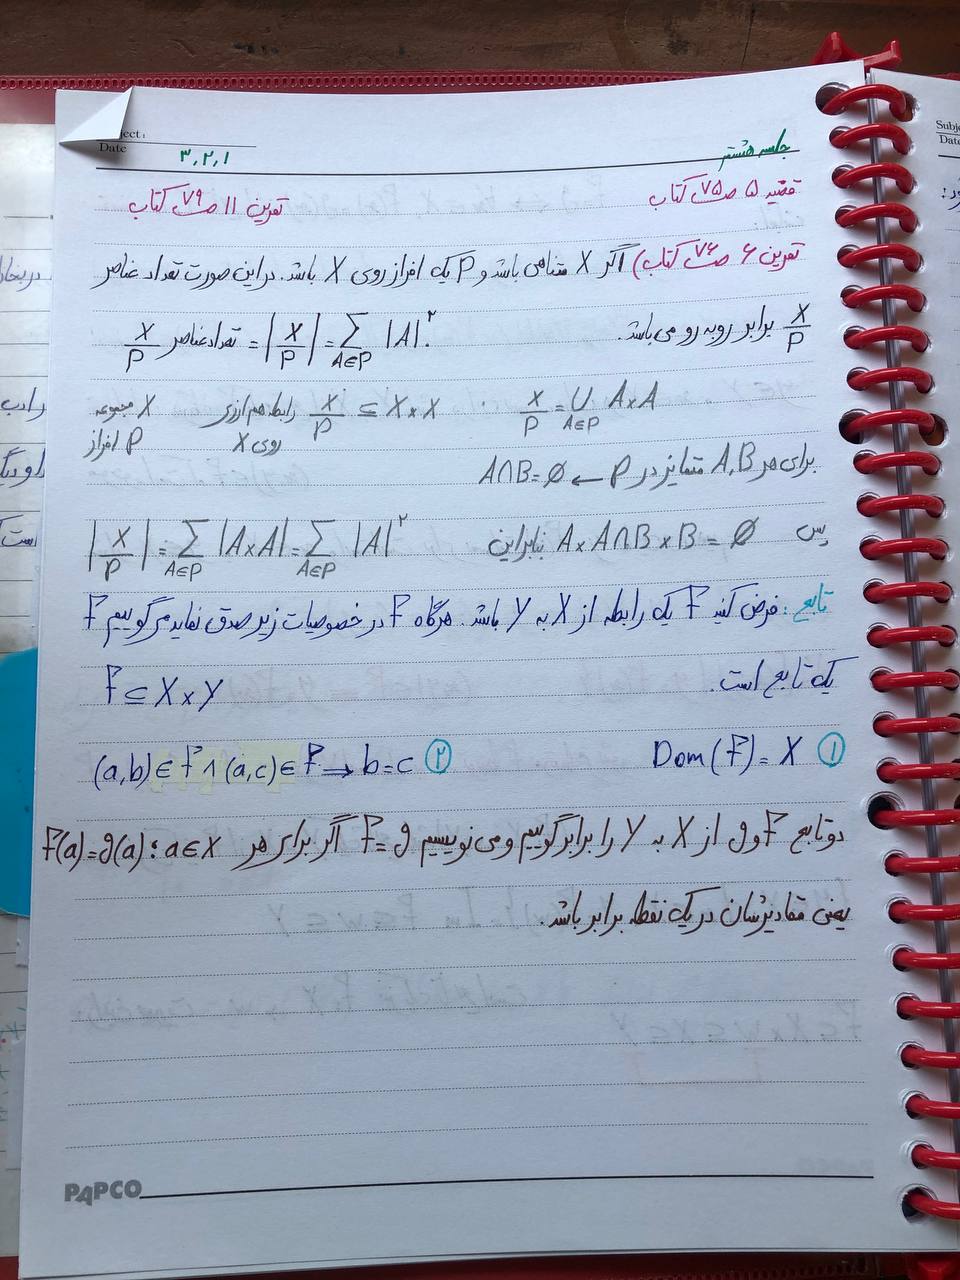 Subject:
Date
جلسه هشتم
۳,۲,۱
قضیه ۵ ص ۷۵ کتاب تمرین ۱۱ ص ۷۹ کتاب
تمرین ۶ ص ۷۶ کتاب) اگر X متناهی باشد و P یک افراز روی X باشد. در این صورت تعداد عناصر
X/P برابر روبه رو می باشد. تعداد عناصر X/P = |X/P| = Σ_{A∈P} |A|²
X/P = ∪_{A∈P} A×A X/P ⊆ X×X رابطه هم ارزی روی X X مجموعه P افراز
برای هر A,B متمایز در P ← A∩B=∅
پس A×A∩B×B=∅ بنابراین |X/P| = Σ_{A∈P} |A×A| = Σ_{A∈P} |A|²
تابع: فرض کنید f یک رابطه از X به Y باشد. هرگاه f در خصوصیات زیر صدق نماید می گوییم f
یک تابع است. f ⊆ X×Y
① Dom(f) = X ② (a,b)∈f ∧ (a,c)∈f ⇒ b=c
دو تابع f و g از X به Y را برابر گوییم و می نویسیم f=g اگر برای هر a∈X : f(a)=g(a)
یعنی مقادیرشان در یک نقطه برابر باشد.
PAPCO